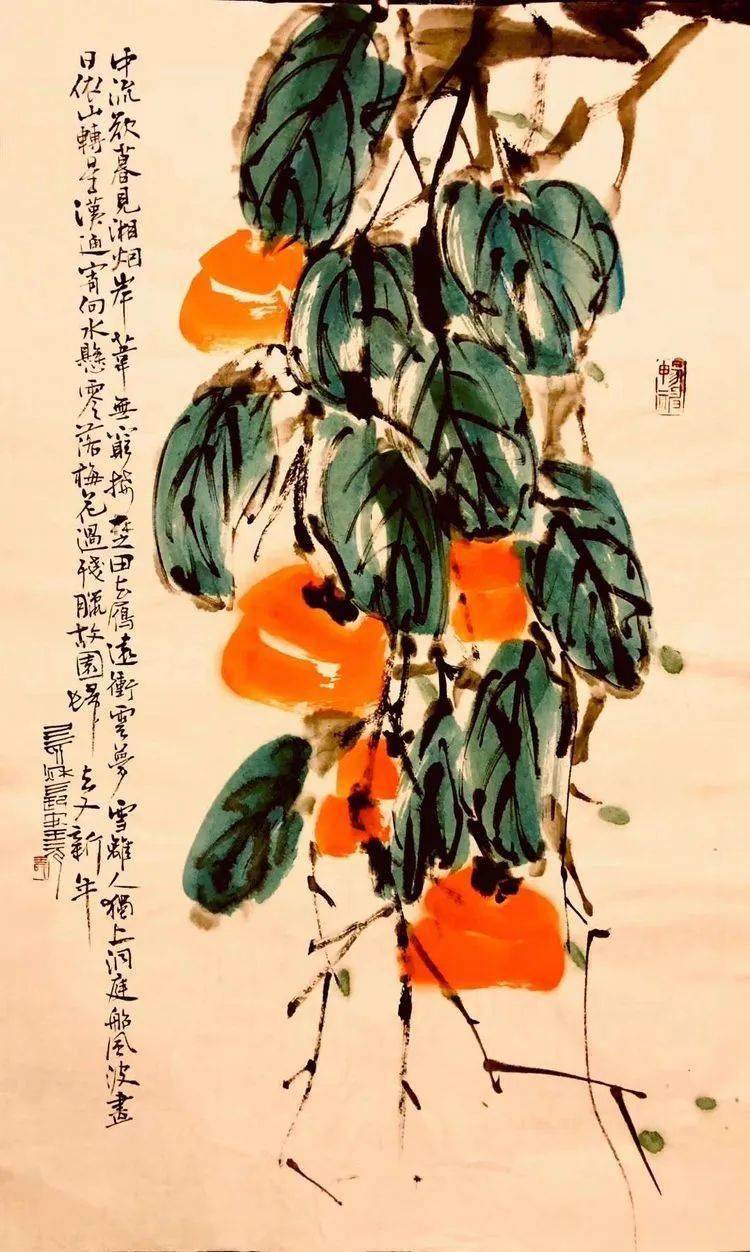 中流欲暮見湘烟岸葦無窮接楚田去鴈遠衝雲夢雪離人獨上洞庭船風波盡
日依山轉星漢通宵向水懸零落梅花過殘臘故園歸去又新年